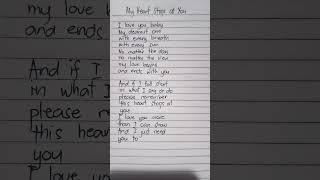 My Heart Stops at You
I love you baby
My dearest one
with every breath
with every sun
No matter the day
no matter the view
my love begins
and ends with you.
And if I fall short
in what I say or do
please remember
this heart stops at
you
I love you more
than I can show
And I just need
you to